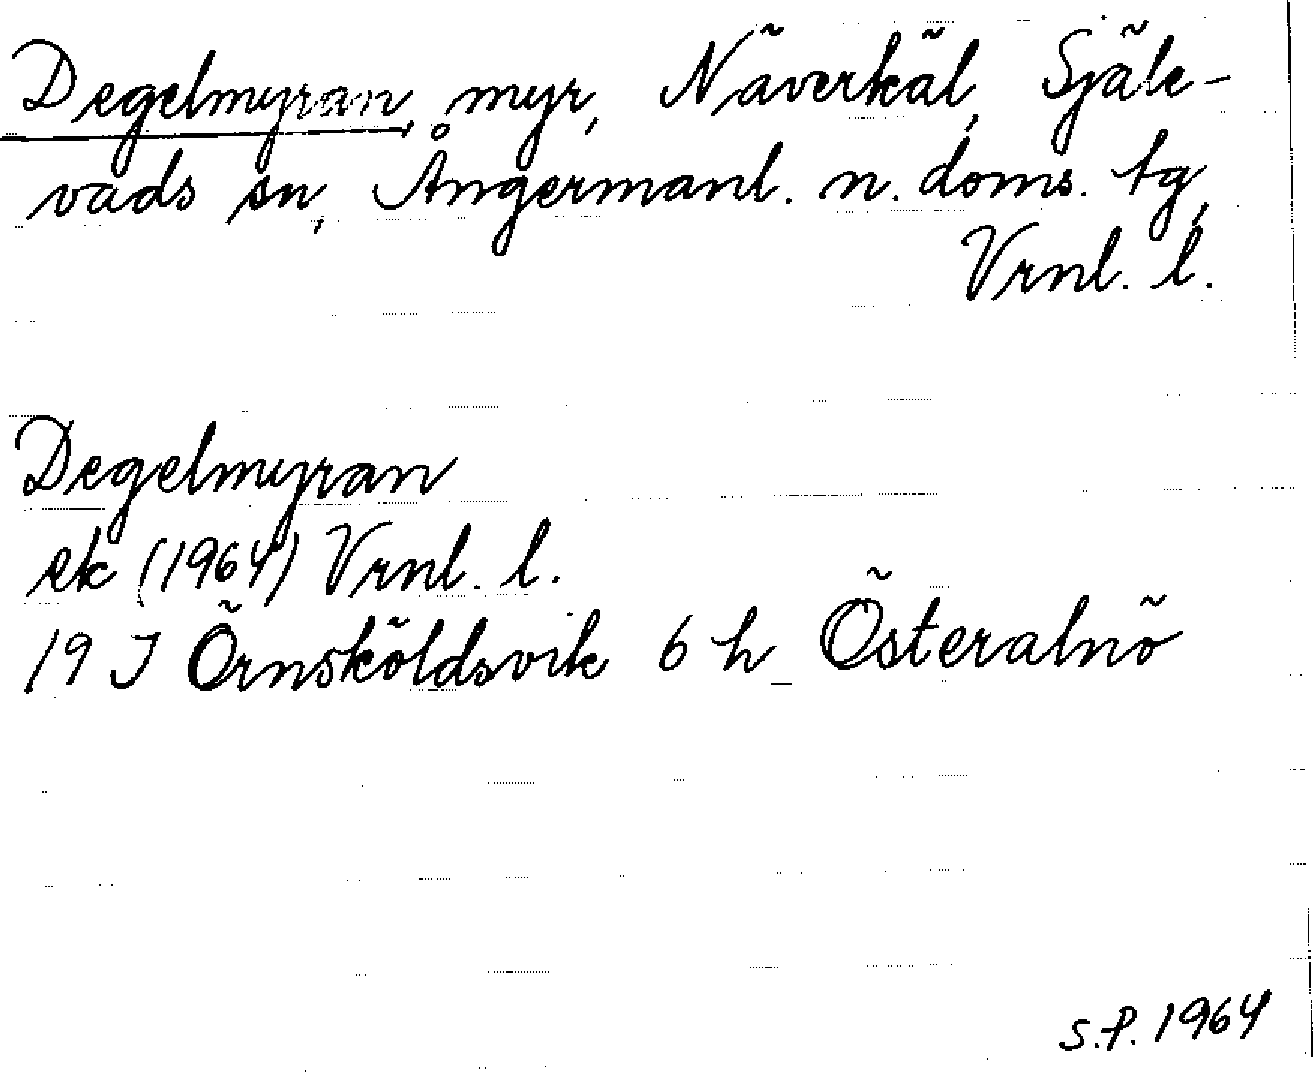 Degelmyran, myr, Näverkäl, Själe-
vads sn, Ångermanl. n. doms. tg,
Vrnl. l.
Degelmyran
ek (1964) Vrnl. l.
19 J Örnsköldsvik 6 h Österalnö
S.P. 1964